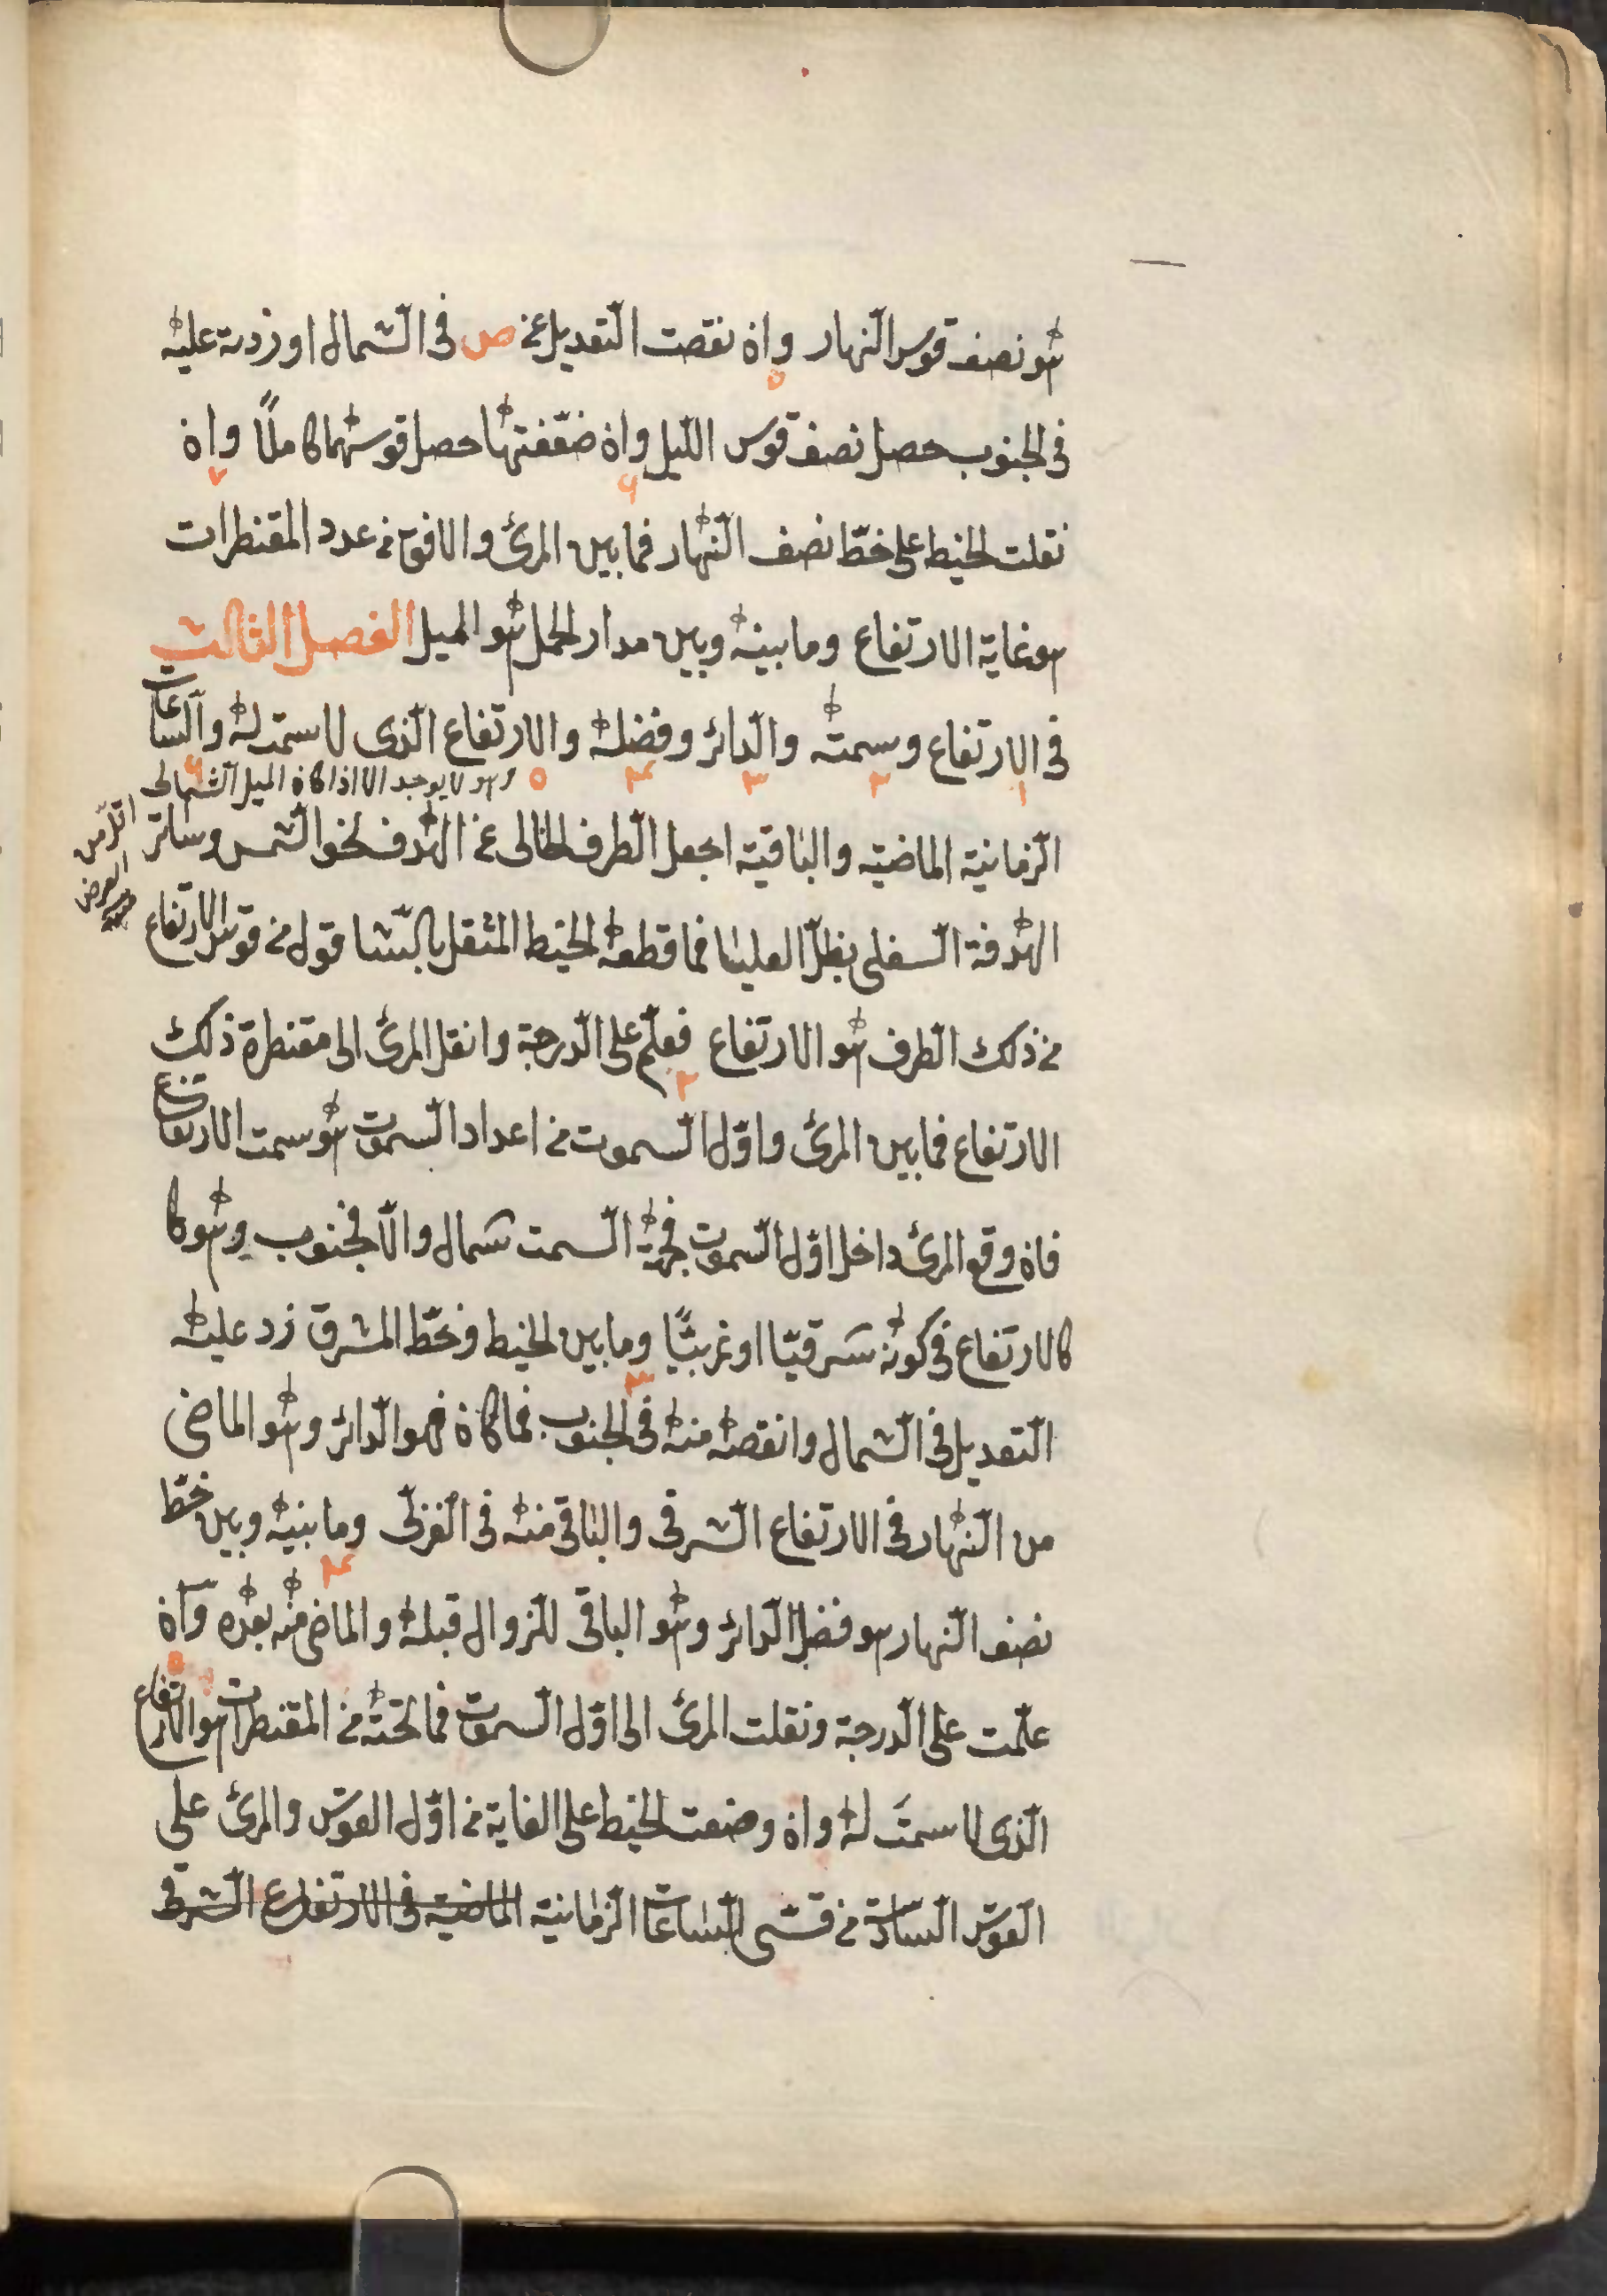 هو نصف قوس النهار وان نقصت التعديل من ص فى الشمال او زدته عليه
فى الجنوب حصل نصف قوس الليل وان ضعّفتها حصل قوسهما كاملًا وان
نقلت الخيط على خطّ نصف النّهار فما بين المرئ والافق من عدد المقنطرات
هو غاية الارتفاع وما بينه وبين مدار الحمل هو الميل الفصل الثالث
فى الارتفاع وسمته والدائر وفضله والارتفاع الذى لا سمت له والسّاعات
وهو لا يوجد الا اذا كان الميل الشمالى
اقل من
العرض
الزمانية الماضية والباقية اجعل الطرف الخالى عن الهدف نحو الشمس وساتر
الهدفة السفلى بظلّ العليا فما قطعه الخيط المثقل بالشاقول من قوس الارتفاع
من ذلك الطرف هو الارتفاع فعلّم على الدرجة وانقل المرئ الى مقنطرة ذلك
الارتفاع فما بين المرئ واوّل السموت من اعداد السموت هو سمت الارتفاع
فان وقع المرئ داخل اوّل السموت فجهة السمت شمال والّا فجنوب وهو كا
كالارتفاع فى كونه شرقيّا او غربيًّا وما بين الخيط وخطّ المشرق زد عليه
التعديل فى الشمال وانقصه منه فى الجنوب فما كان فهو الدائر وهو الماضى
من النّهار فى الارتفاع الشرقى والباقى منه فى الغربى وما بينه وبين خطّ
نصف النهار هو فضل الدائر وهو الباقى للزوال قبله والماضى منه بعده وان
علّمت على الدرجة ونقلت المرئ الى اوّل السموت فما تحته من المقنطرات هو الارتفاع
الذى لا سمتَ له وان وضعت الخيط على الغاية من اوّل القوس والمرئ على
القوس السادة من قسى السّاعات الزمانية الماضية فى الارتفاع الشرقى